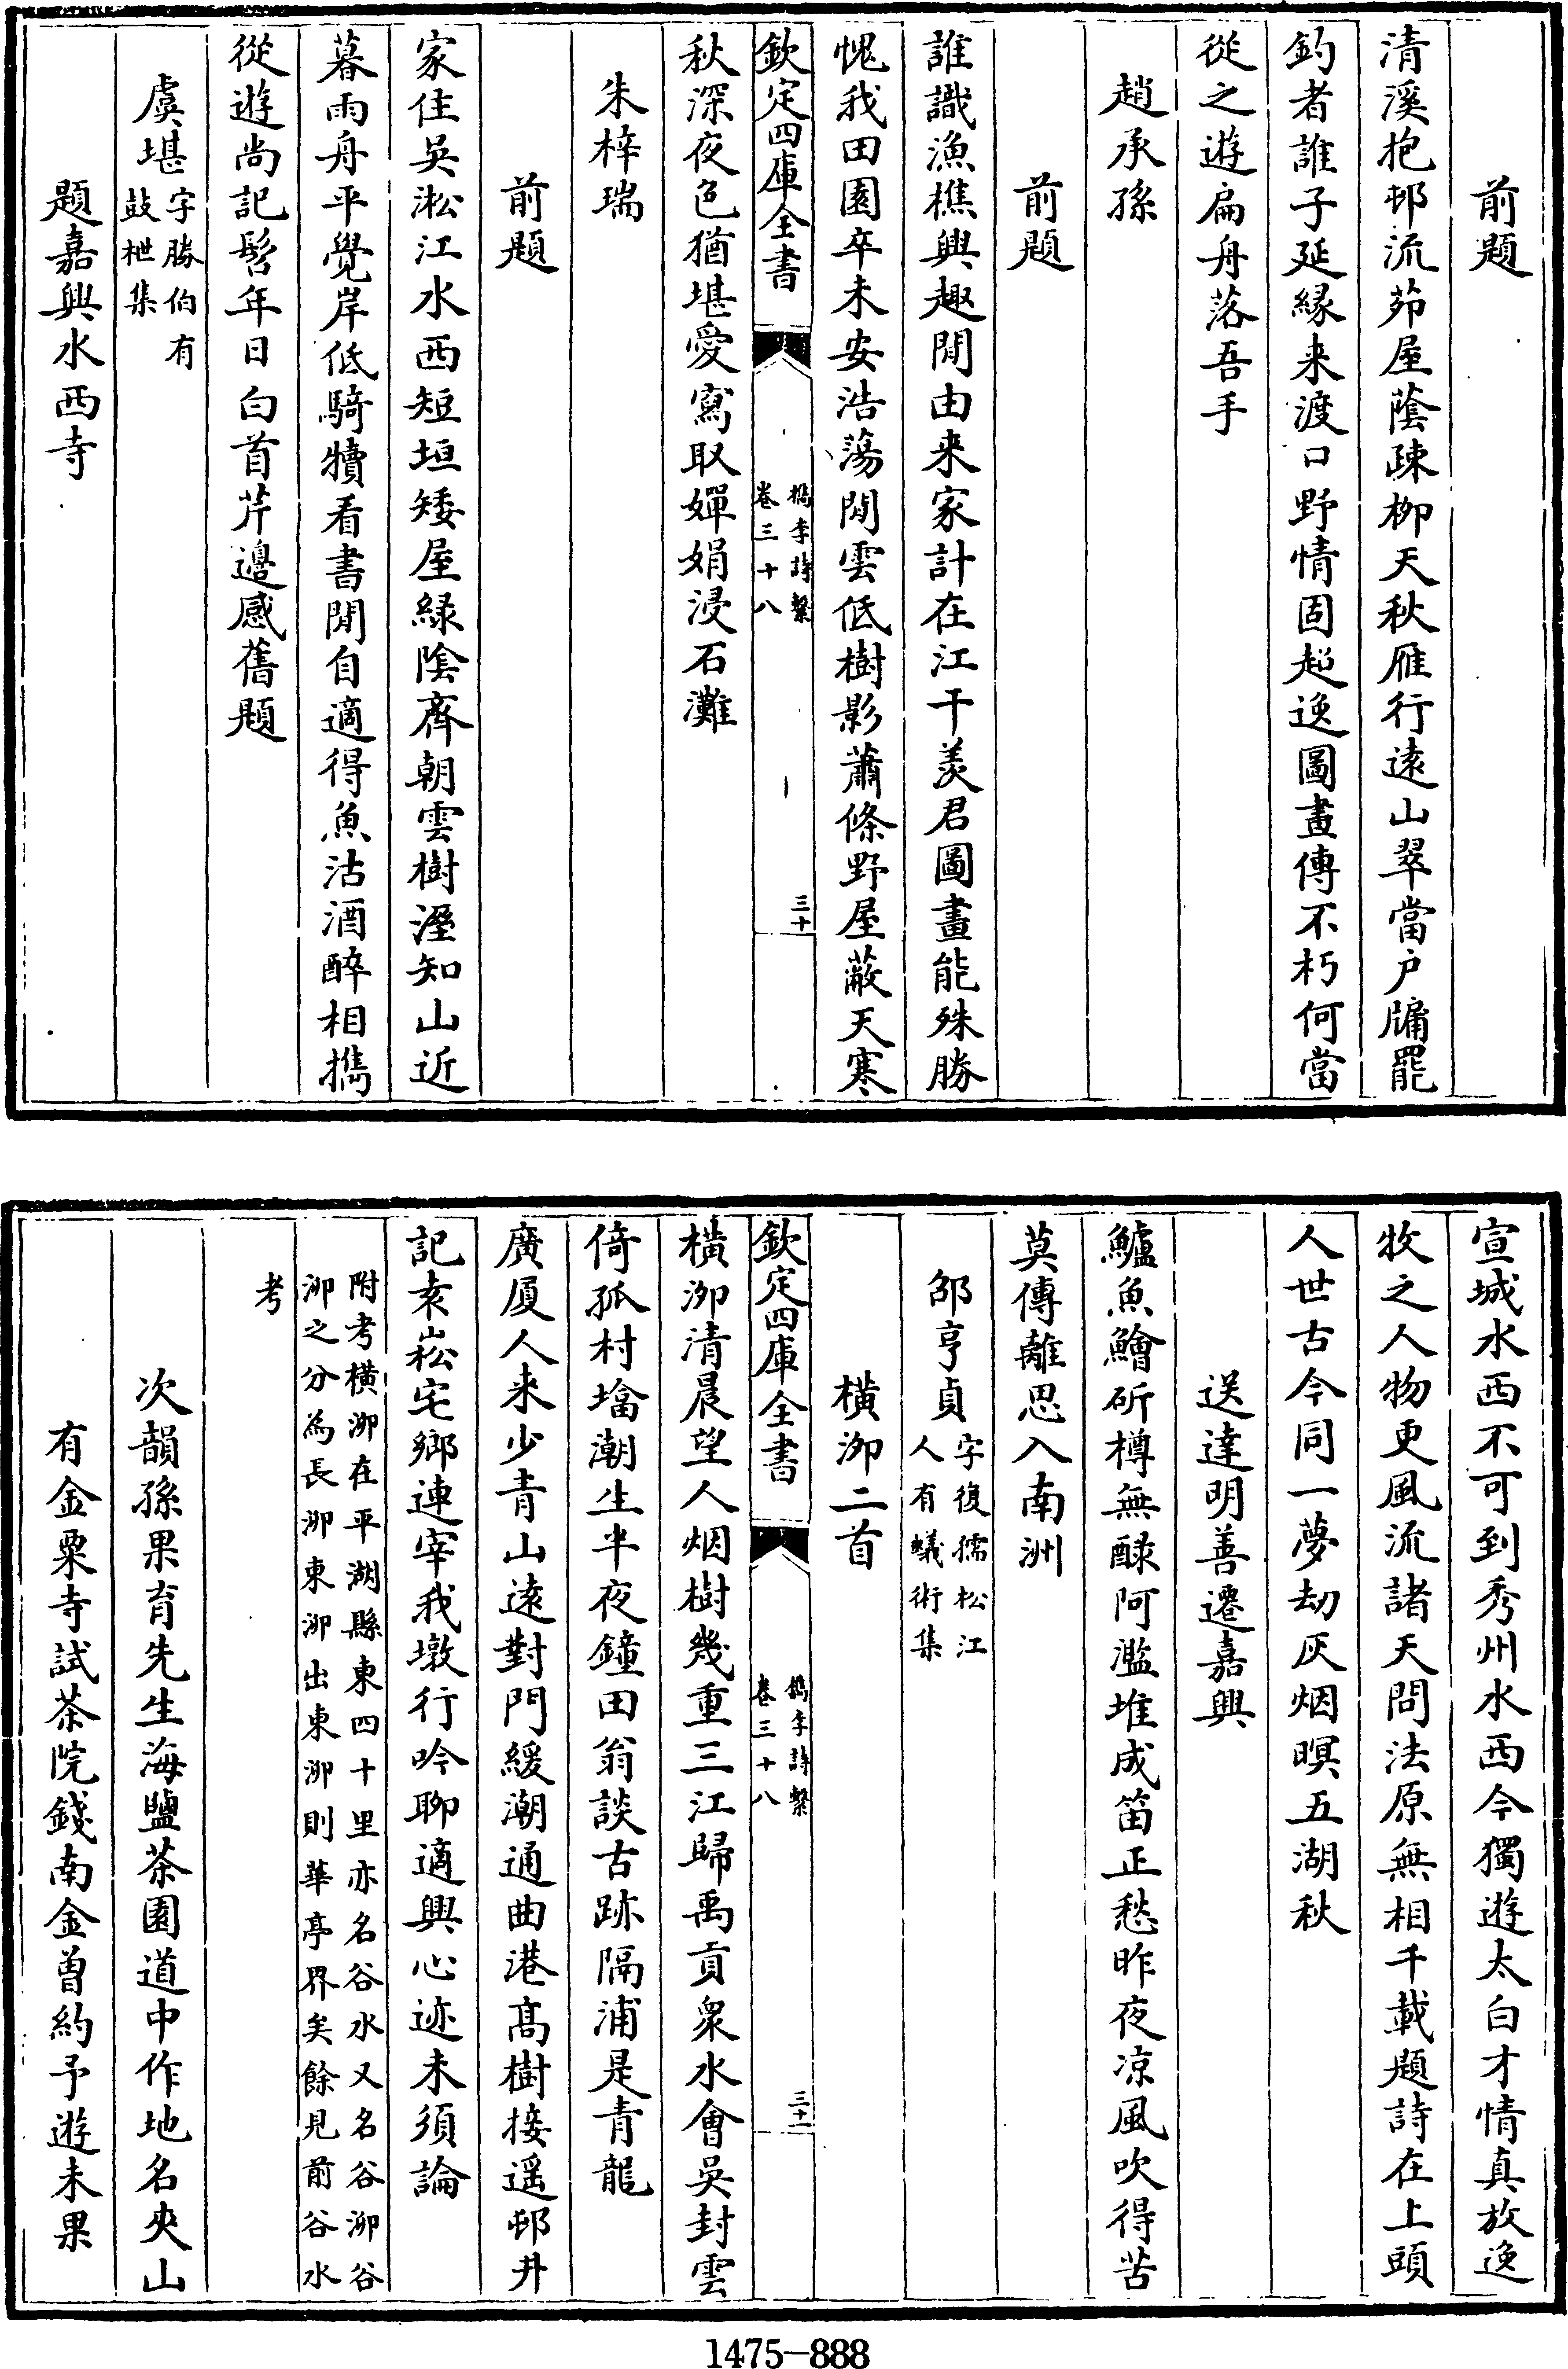 前題
清溪抱邨流茆屋蔭疎柳天秋雁行遠山翠當户牖罷
釣者誰子延緣来渡口野情固超逸圖畫傳不朽何當
從之遊扁舟落吾手
趙承孫
前題
誰識漁樵興趣閒由来家計在江干羨君圖畫能殊勝
愧我田園卒未安浩蕩閒雲低樹影蕭條野屋蔽天寒
欽定四庫全書
檇李詩繫
卷三十八
三十
秋深夜色猶堪愛寫取嬋娟浸石灘
朱梓瑞
前題
家住吳淞江水西短垣矮屋緑陰齊朝雲樹溼知山近
暮雨舟平覺岸低騎犢看書閒自適得魚沽酒醉相携
從遊尚記髫年日白首芹邊感舊題
虞堪
字勝伯有
鼓枻集
題嘉興水西寺
宣城水西不可到秀州水西今獨遊太白才情真放逸
牧之人物更風流諸天問法原無相千載題詩在上頭
人世古今同一夢劫灰烟暝五湖秋
送達明善遷嘉興
鱸魚鱠斫樽無醁阿濫堆成笛正愁昨夜凉風吹得苦
莫傳離思入南洲
邵亨貞
字復孺松江
人有蟻術集
横泖二首
欽定四庫全書
檇李詩繫
卷三十八
三十一
横泖清晨望人烟樹幾重三江歸禹貢衆水會吳封雲
倚孤村墖潮生半夜鐘田翁談古跡隔浦是青龍
廣厦人来少青山遠對門緩潮通曲港髙樹接遥邨井
記袁崧宅鄉連宰我墩行吟聊適興心迹未須論
附考横泖在平湖縣東四十里亦名谷水又名谷泖谷
泖之分為長泖東泖出東泖則華亭界矣餘見前谷水
考
次韻孫果育先生海鹽茶園道中作地名夾山
有金粟寺試茶院錢南金曾約予遊未果
1475-888